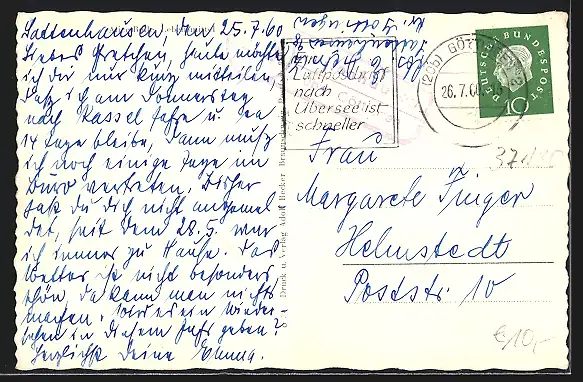 Sattenhausen, den 25.7.60
Liebes Gretchen, heute möchte
ich Dir nur kurz mitteilen,
daß ich am Donnerstag
nach Kassel fahre u. ca
14 Tage bleibe, dann muß
ich noch einige Tage im
Büro vertreten. Bisher
hast Du dich nicht angemel
det, seit dem 28.5. war
ich immer zu Hause. Das
Wetter ist nicht besonders
schön, da kann man nichts
machen. Wird es ein Wieder-
sehen in diesem Jahr geben?
Herzlichst Deine
Sattenhausen
Kr. Göttingen
Druck u. Verlag Adolf Becker
Luftpostdienst
nach
Übersee ist
schneller
(20b) GÖTTINGEN
26.7.60
DEUTSCHE BUNDESPOST
10
Frau
Margarete Finger
Helmstedt
Poststr. 10
€10,-